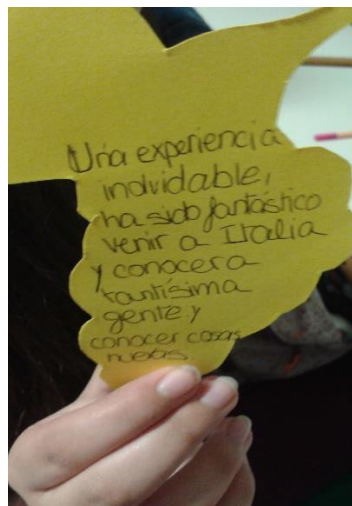 Una experiencia
inolvidable,
ha sido fantástico
venir a Italia
y conocer a
tantísima
gente y
conocer cosas
nuevas.